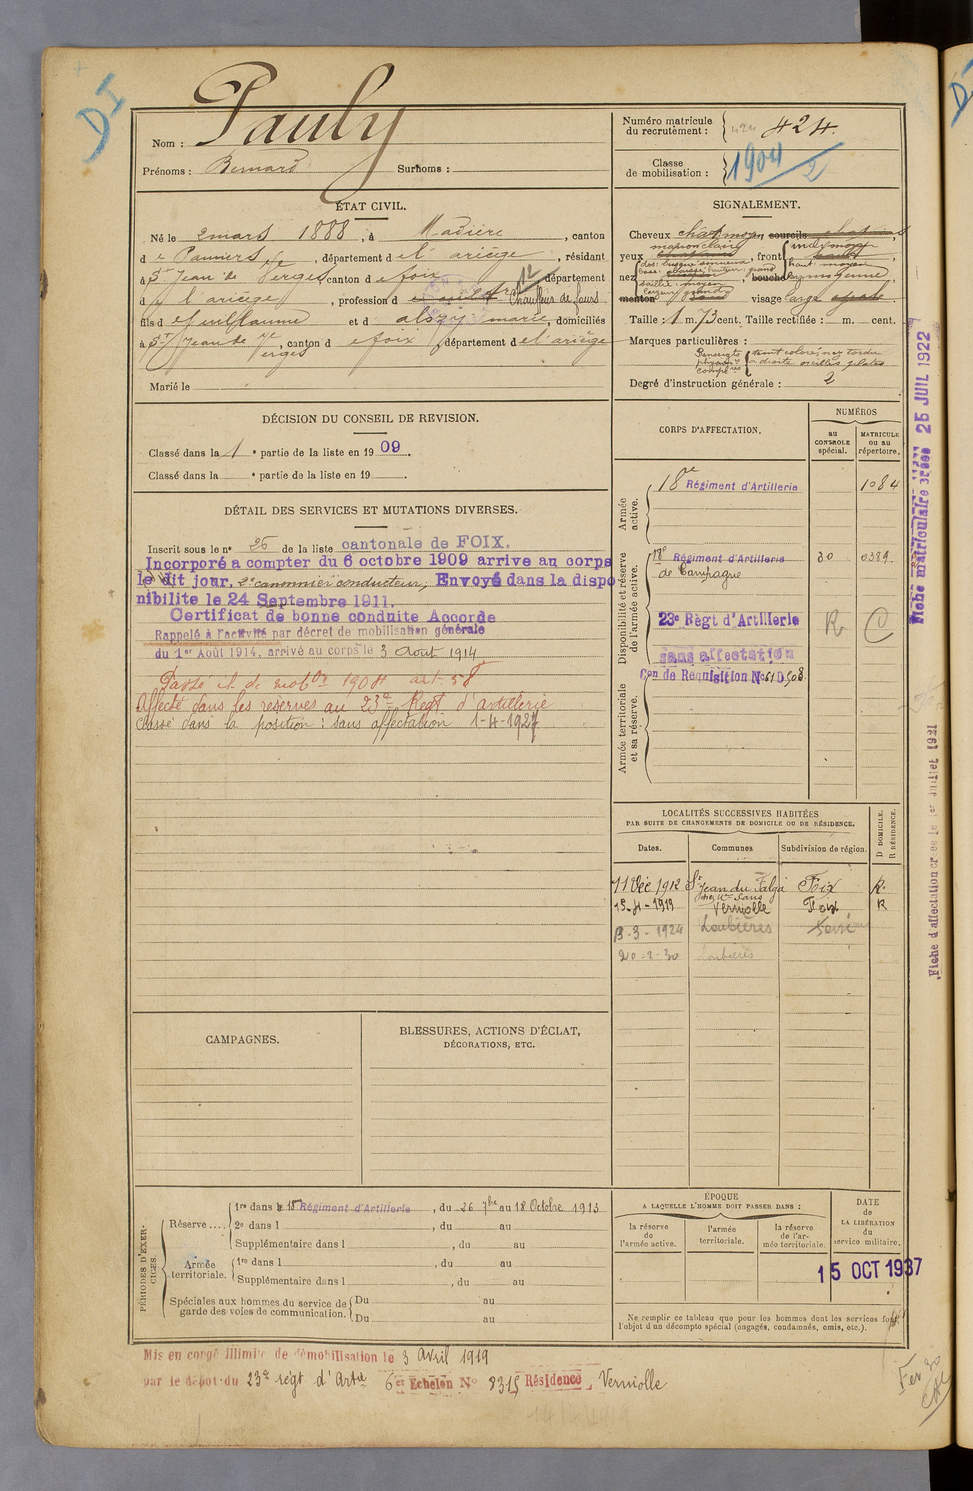 DI
Nom : Pauly
Prénoms : Bernard Surnoms :
Numéro matricule du recrutement : 424 424.
Classe de mobilisation : 1904 2
ÉTAT CIVIL.
Né le 2 mars 1888, à Madière, canton
de Pamiers, département de l'ariège, résidant
à St Jean de Verges, canton de foix, département
d l'ariège, profession d Chauffeur de fours
fils d Guillaume et d marie, domiciliés
à St Jean de Verges, canton de foix, département de l'ariège
Marié le
SIGNALEMENT.
Cheveux chat moyen sourcils
marron clair
yeux , front moyen
nez , bouche moyenne
menton visage large
Taille : 1 m. 73 cent. Taille rectifiée : m. cent.
Marques particulières :
teint coloré, nez tordu
à droite oreilles
Degré d'instruction générale : 2
DÉCISION DU CONSEIL DE REVISION.
Classé dans la 1 e partie de la liste en 1909.
Classé dans la e partie de la liste en 19
DÉTAIL DES SERVICES ET MUTATIONS DIVERSES.
Inscrit sous le n° 26 de la liste cantonale de FOIX.
Incorporé a compter du 6 octobre 1909 arrive au corps
le dit jour. 2e canonnier conducteur, Envoyé dans la dispo
nibilite le 24 Septembre 1911.
Certificat de bonne conduite Accorde
Rappelé à l'activité par décret de mobilisation générale
du 1er Août 1914, arrivé au corps le 3 Aout 1914
Passe cl. de mobon 1904 art. 58
Affecté dans les réserves au 23e Regt d'artillerie
classé dans la position : sans affectation 1-4-1927
CORPS D'AFFECTATION.
NUMÉROS
au CONTROLE spécial.
MATRICULE ou au répertoire.
Armée active.
18e Régiment d'Artillerie 1084
Disponibilité et réserve de l'armée active.
18e Régiment d'Artillerie 30 0389
de Campagne
23e Régt d'Artillerie R C
sans affectation
Con de Requisition N° 61 D 908
Armée territoriale et sa réserve.
Fiche matriculaire créée 25 JUIL 1922
Fiche d'affectation créée le 1er Juillet 1921
LOCALITÉS SUCCESSIVES HABITÉES
PAR SUITE DE CHANGEMENTS DE DOMICILE OU DE RÉSIDENCE.
Dates. Communes Subdivision de région. D DOMICILE. R RÉSIDENCE.
11 Déc 1912 St Jean du Falga Foix R.
15-4-1919 Verniolle Foix R
3-3-1924 Loubières
20-2-30 Loubières
CAMPAGNES.
BLESSURES, ACTIONS D'ÉCLAT,
DÉCORATIONS, ETC.
PÉRIODES D'EXERCICES.
Réserve ....
1re dans le 18me Régiment d'Artillerie, du 26 7bre au 18 Octobre 1913
2e dans l , du au
Supplémentaire dans l , du au
Armée territoriale.
1re dans l , du au
Supplémentaire dans l , du au
Spéciales aux hommes du service de garde des voies de communication.
Du au
Du au
ÉPOQUE
A LAQUELLE L'HOMME DOIT PASSER DANS :
la réserve de l'armée active.
l'armée territoriale.
la réserve de l'armée territoriale.
DATE de LA LIBÉRATION du service militaire.
15 OCT 1937
Ne remplir ce tableau que pour les hommes dont les services font
l'objet d'un décompte spécial (engagés, condamnés, omis, etc.).
Mis en congé illimité de démobilisation le 3 Avril 1919
par le dépot du 23e régt d'Artie 6e Echelon N° 8315 Résidence, Verniolle